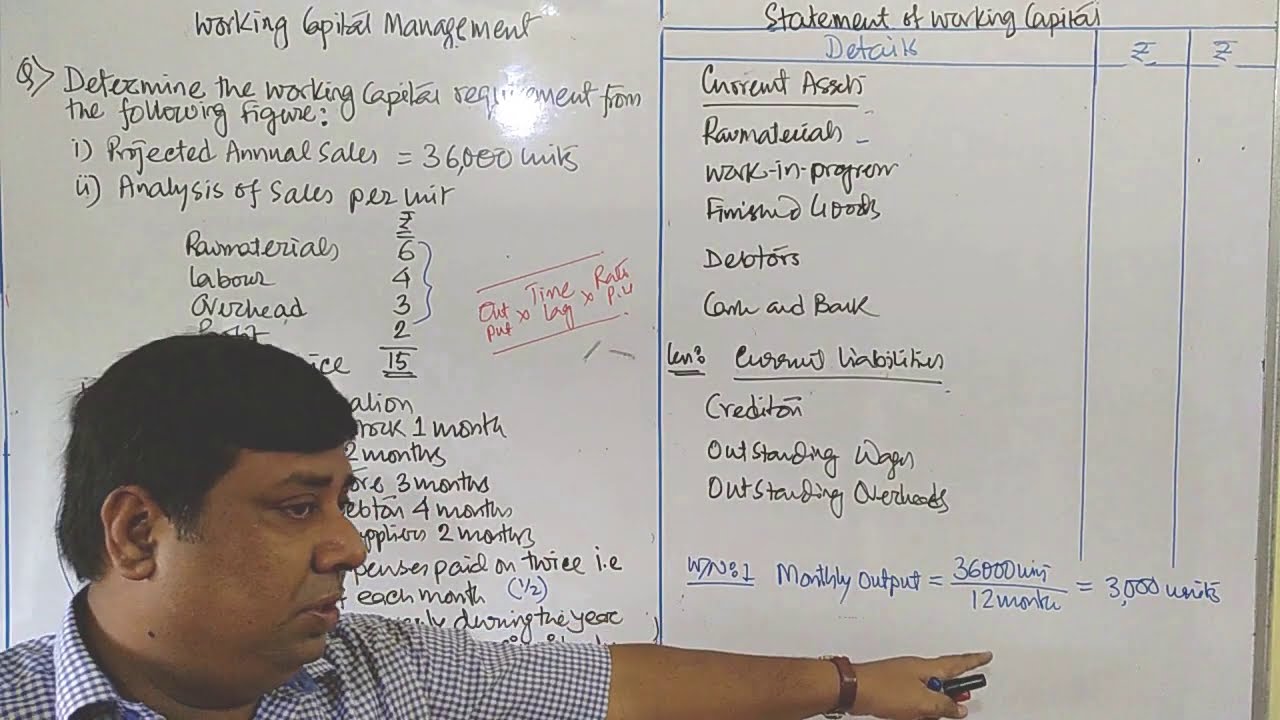 Working Capital Management
Q> Determine the working Capital requirement from
the following figure:
i) Projected Annual Sales = 36,000 units
ii) Analysis of Sales per unit
₹
Rawmaterials 6
Labour 4
Overhead 3
2
15
ation
1 month
2 months
ore 3 months
ebtors 4 months
ppliers 2 months
penses paid on twice i.e
each month (1/2)
during the year
Output × Time Lag × Rate P.U
Statement of Working Capital
Details ₹ ₹
Current Assets
Rawmaterials
Work-in-progress
Finished Goods
Debtors
Cash and Bank
Less: Current Liabilities
Creditors
Outstanding Wages
Outstanding Overheads
W/N:1 Monthly Output = 36000 units / 12 month = 3,000 units